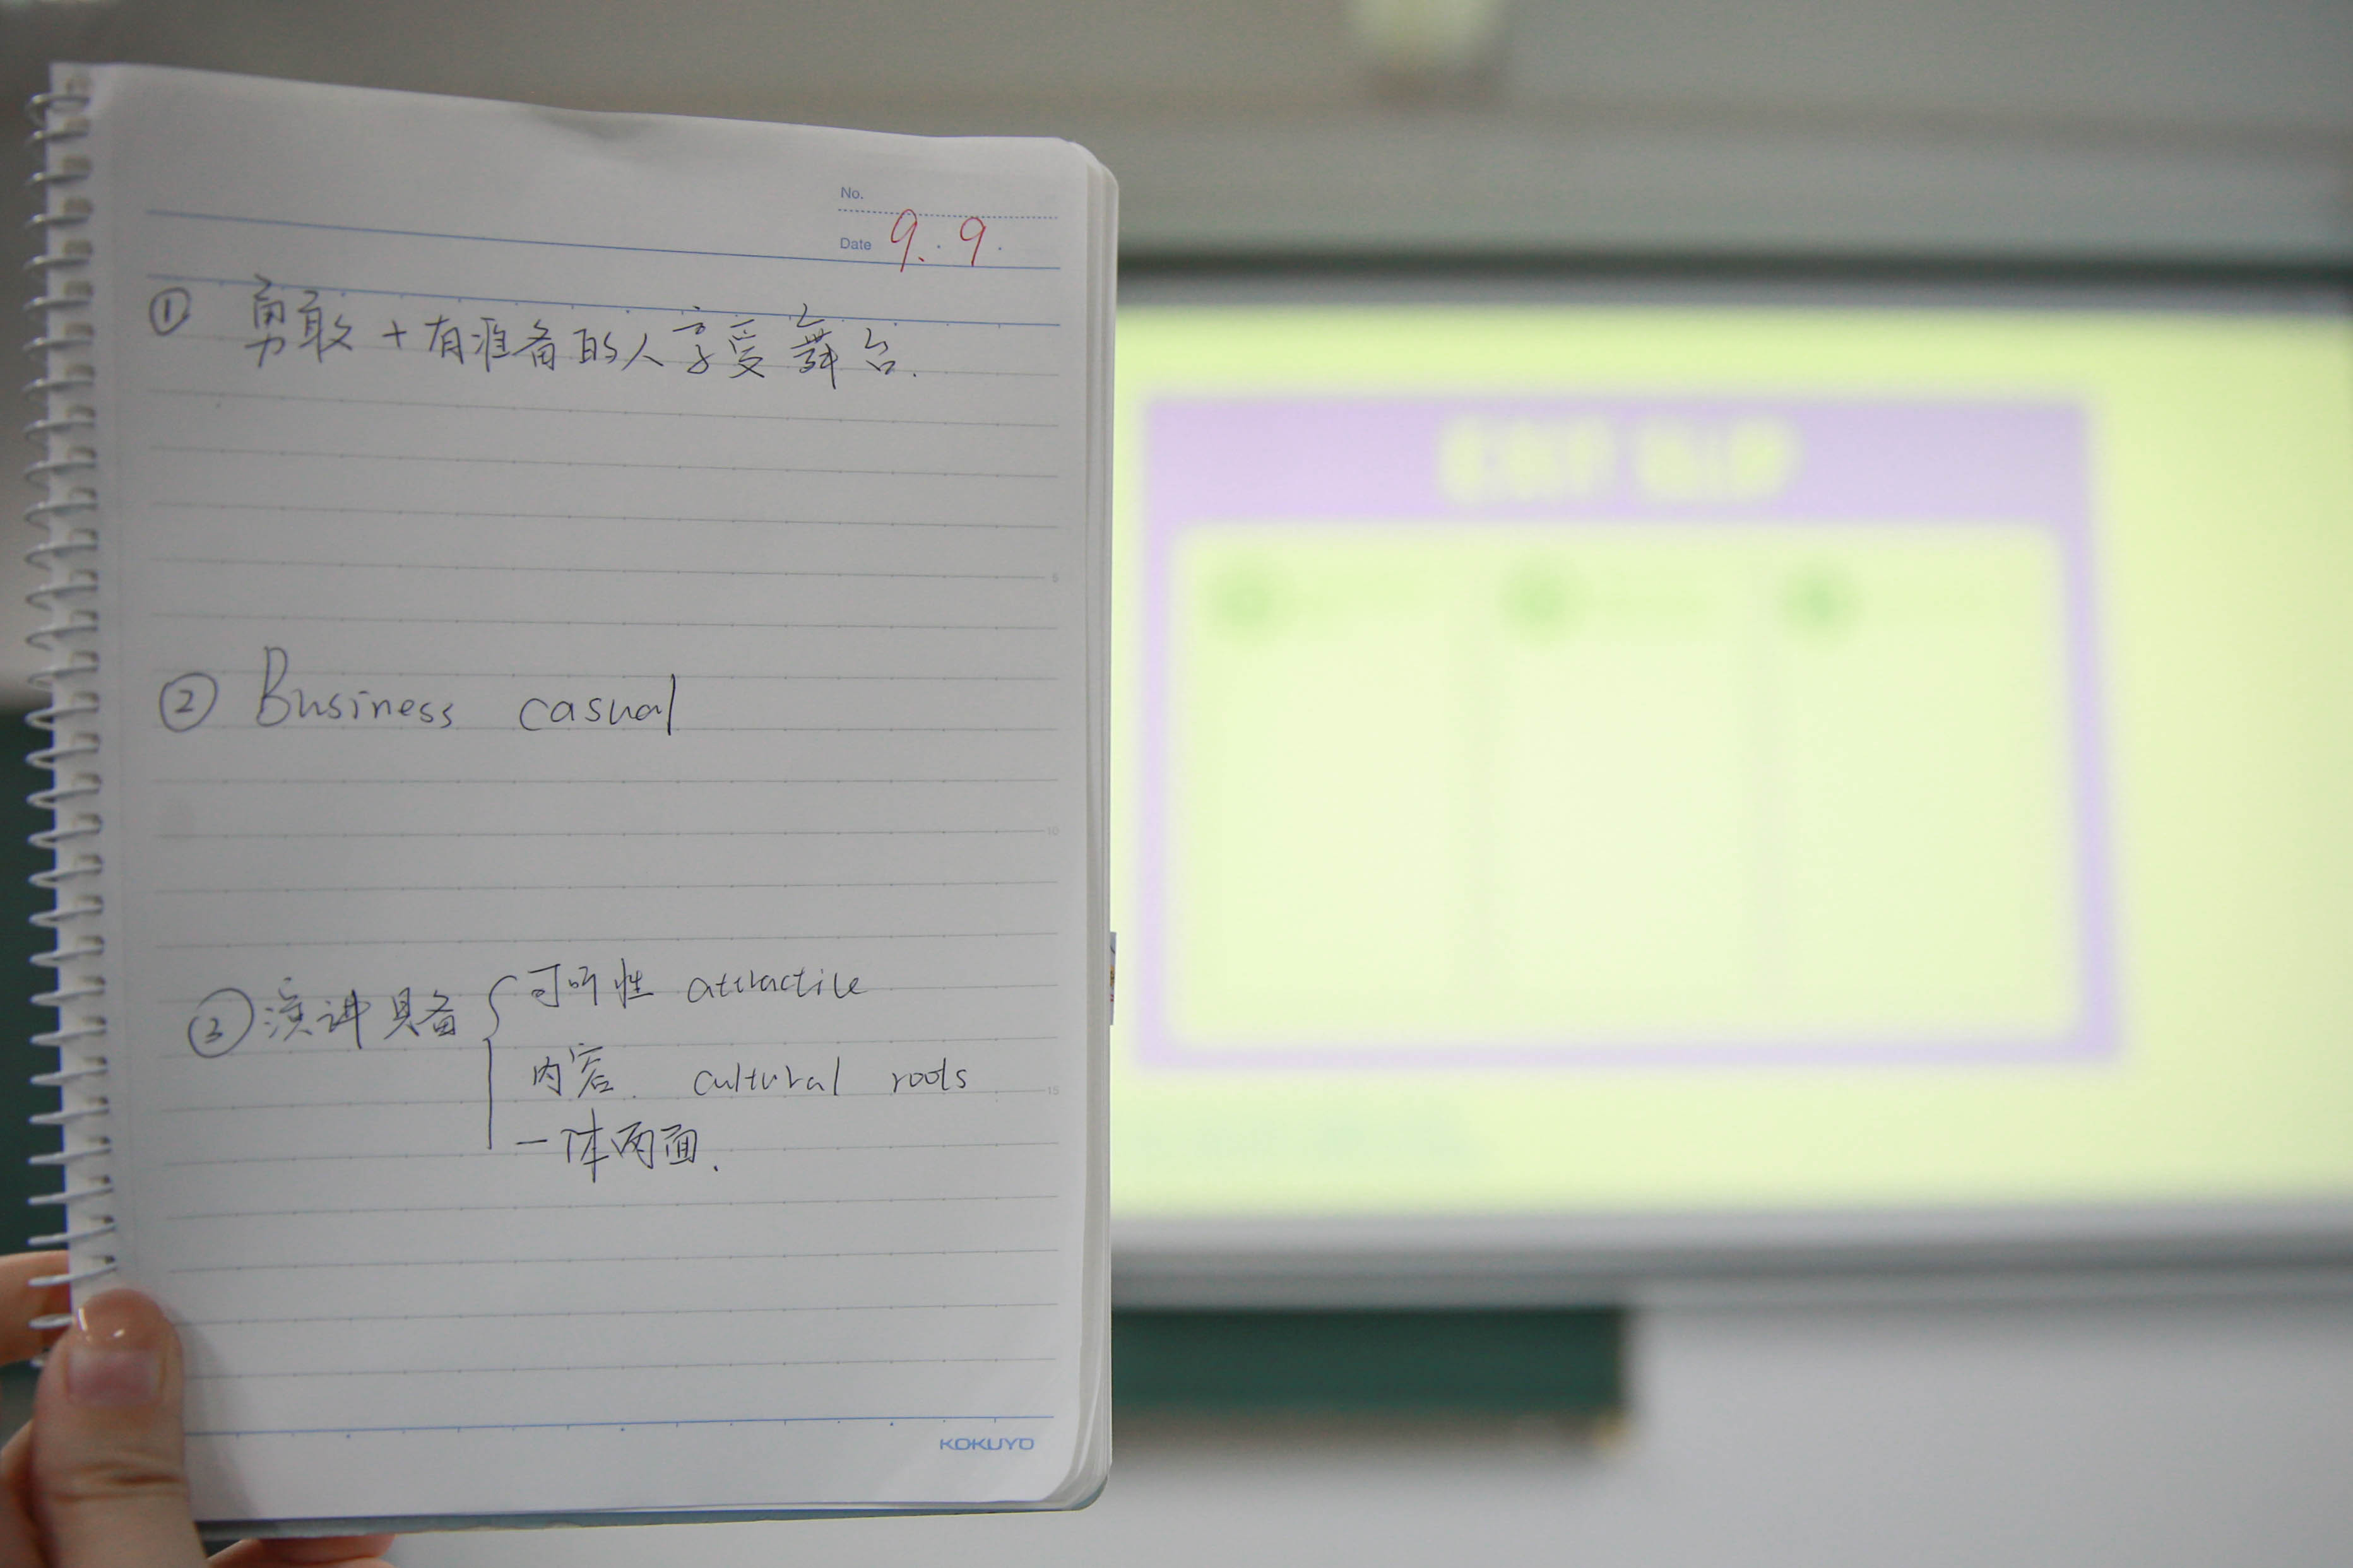 No.
Date 9.9.
① 勇敢+有准备的人享受舞台.
5
② Business casual
10
③ 演讲具备 { 可听性 attractive
内容. cultural roots
15
一体两面.
KOKUYO